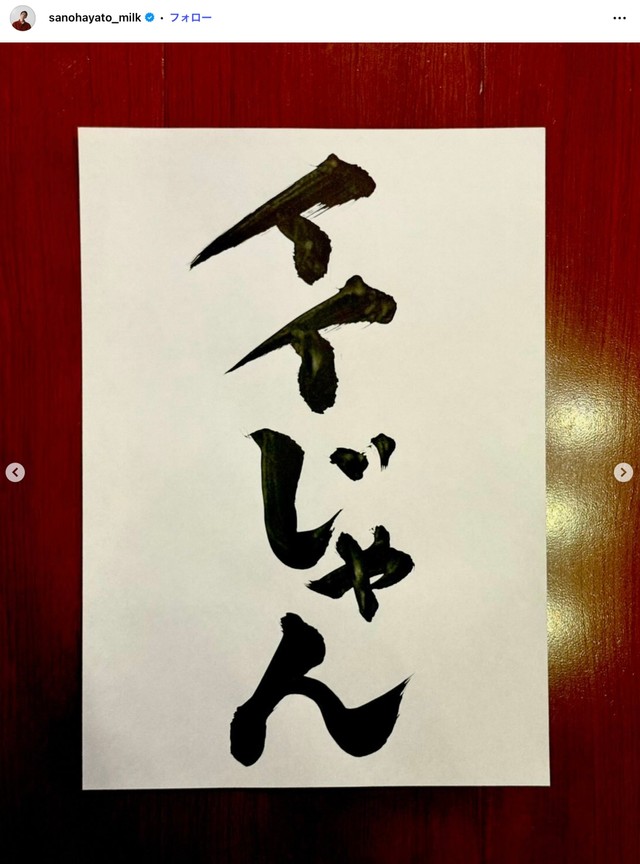 sanohayato_milk • フォロー
イイじゃん